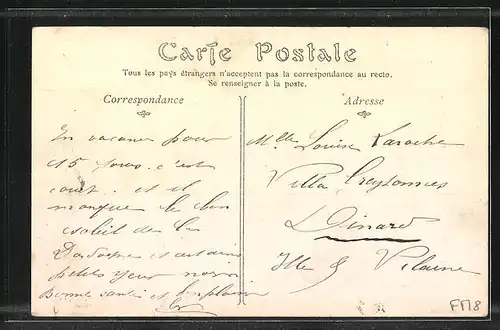 Carte Postale
Tous les pays étrangers n'acceptent pas la correspondance au recto.
Se renseigner à la poste.
Correspondance
Adresse
En vacances pour
15 jours. c'est
court. et il
manque le bon
soleil de la
Dordogne et certains
petits yeux noirs
Bonne santé et
Mlle Louise Laroche
Villa
Dinard
Ille & Vilaine
FM8